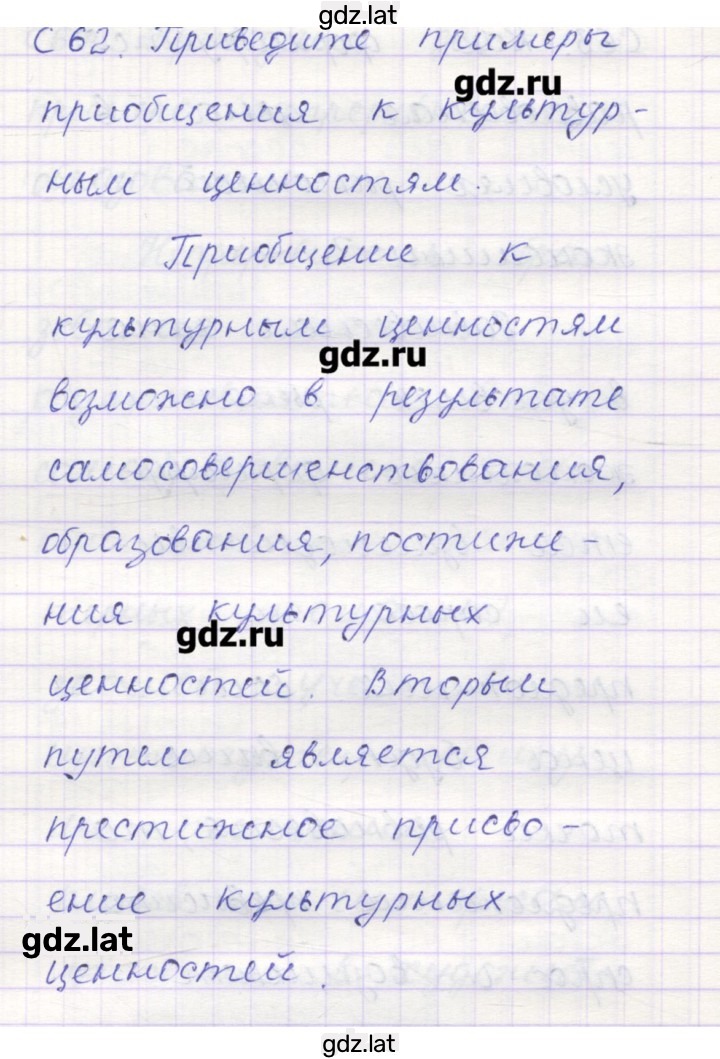 gdz.lat
С 62. Приведите примеры
gdz.ru
приобщения к культур-
ным ценностям.
Приобщение к
культурным ценностям
gdz.ru
возможно в результате
самосовершенствования,
образования, постиже-
ния культурных
gdz.ru
ценностей. Вторым
путем является
престижное присво-
ение культурных
gdz.lat
ценностей.
gdz.lat